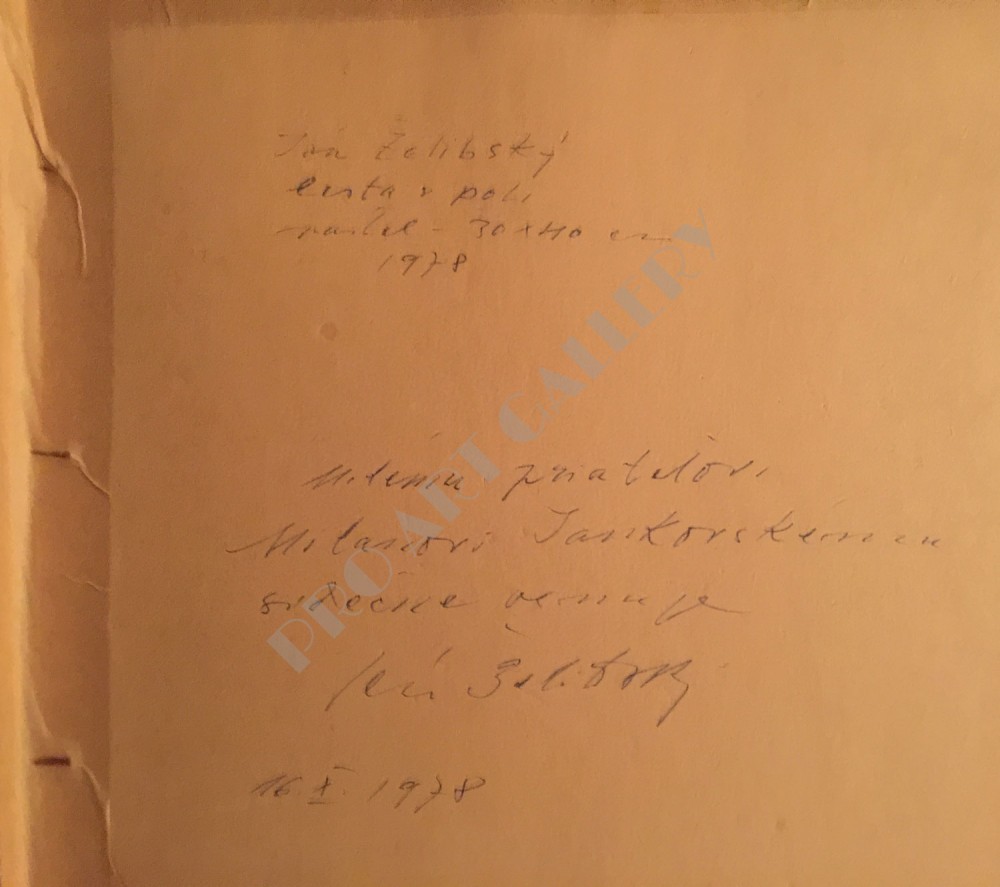 Ján Želibský
cesta v poli
pastel - 30 x 40 cm
1978
PRO ART GALLERY
Milému priateľovi
Milanovi Jankovskému
srdečne venuje
Ján Želibský
16. X. 1978